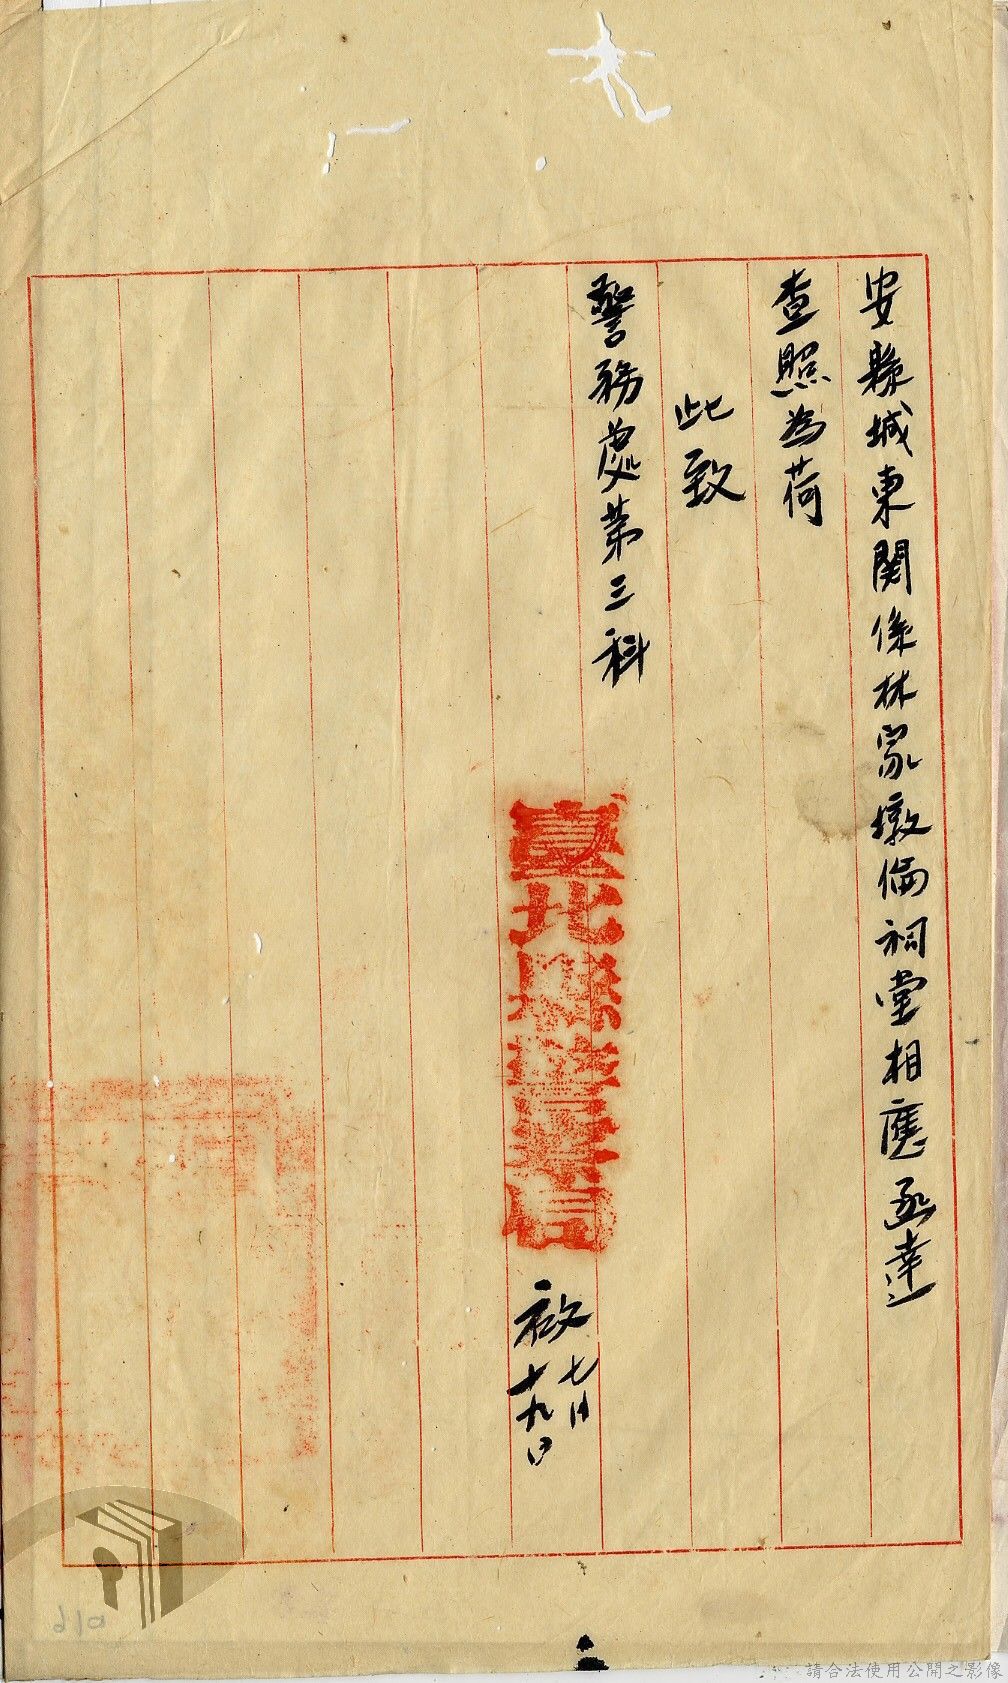 安縣城東関係林家墩倫祠堂相應函達
查照為荷
此致
警務處第三科
臺北縣警察局
啟
七月
十九日
請合法使用公開之影像